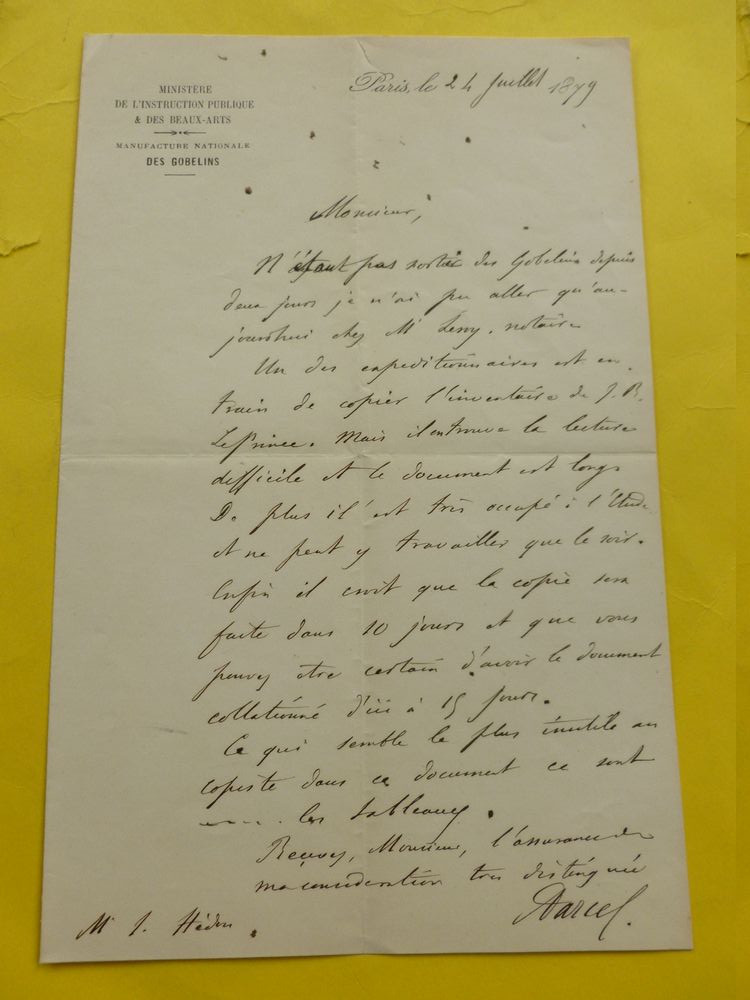 MINISTÈRE
DE L'INSTRUCTION PUBLIQUE
& DES BEAUX-ARTS
MANUFACTURE NATIONALE
DES GOBELINS
Paris, le 24 Juillet 1879
Monsieur,
N'étant pas sorti des Gobelins depuis
deux jours je n'ai pu aller qu'au-
jourdhui chez Mr Leroy, notaire
Un des expéditionnaires est en
train de copier l'inventaire de J. B.
Le Prince. Mais il en trouve la lecture
difficile et le document est long.
De plus il est très occupé à l'Etude
et ne peut y travailler que le soir.
Enfin il croit que la copie sera
faite dans 10 jours et que vous
pouvez être certain d'avoir le document
collationné d'ici à 15 jours.
Ce qui semble le plus inutile au
copiste dans ce document ce sont
les tableaux.
Recevez, Monsieur, l'assurance de
ma considération très distinguée
Darcel.
Mr J. Hédou